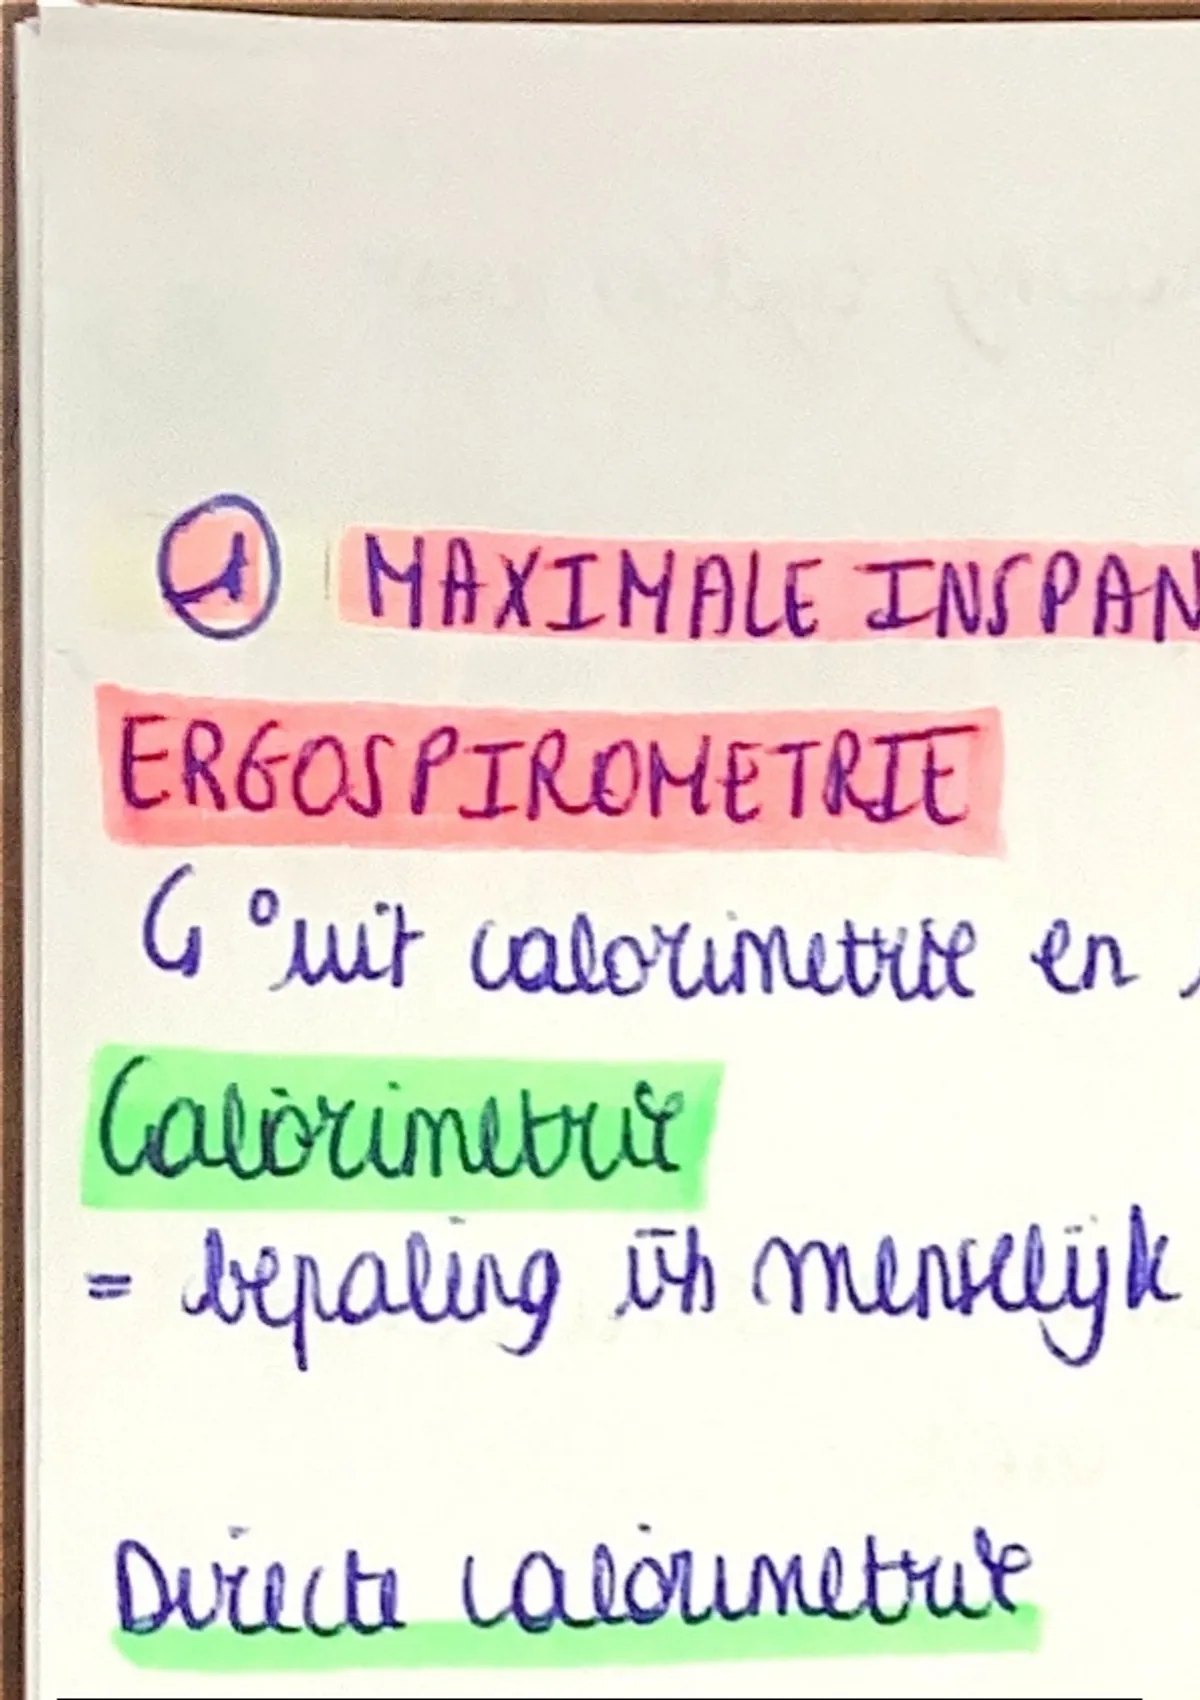 ① MAXIMALE INSPAN
ERGOSPIROMETRIE
↳ °uit calorimetrie en
Calorimetrie
= bepaling i/h menselijk
Directe calorimetrie